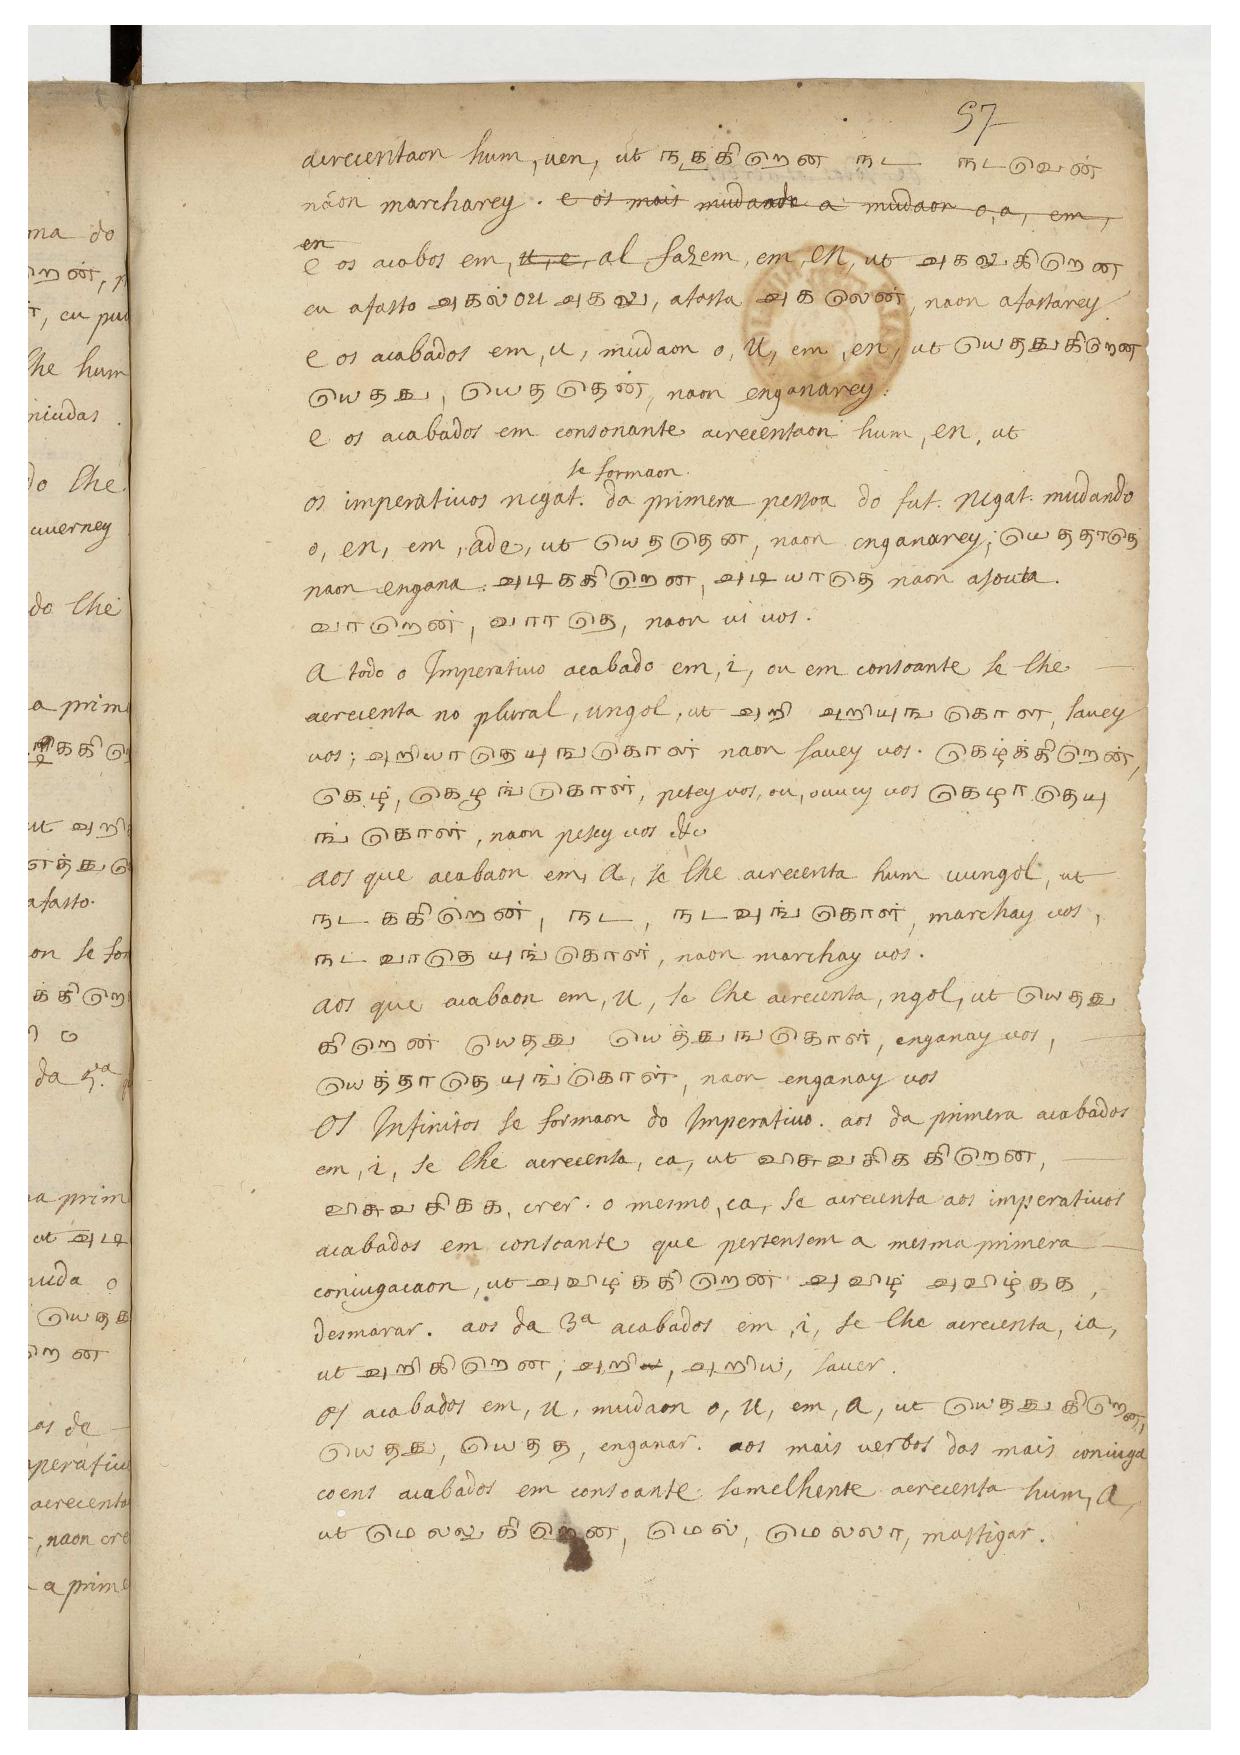 57
acrecentaon hum, uen, ut நடக்கிறென நட நடவென்
náon marcharey. e os mais mudando a mudaon o, a, em,
en
e os acabos em, u, e, al, fazem, em, en, ut அகலுகிறென
eu afasto அகல் ou அகலு, afasta அகலென், naon afastarey.
e os acabados em, u, mudaon o, u, em, en, ut யெதது கிறென
யெதது, யெததென், naon enganarey.
e os acabados em consonante acrecentaon hum, en, ut
se formaon.
os imperatiuos negat. da primera pessoa do fut. negat. mudando
o, en, em, ade, ut யெததென, naon enganarey; யெததாதெ
naon engana. அடிககிறென, அடியாதெ naon asouta.
வாறென், வாராதெ, naon ui uos.
A todo o Imperatiuo acabado em, i, ou em consoante se lhe
acrecenta no plural, ungol, ut அறி அறியுஙகொள, sauey
uos; அறியாதெயுஙகொள் naon sauey uos. கெழ்க்கிறென்,
கெழ், கெழுங்கொள், petey uos, ou, ouuey uos கெழாதெயு
ங்கொள், naon pesey uos &c
aos que acabaon em, a, se lhe acrecenta hum uungol, ut
நடககிறென், நட, நடவுங்கொள், marchay uos,
நடவாதெயுங்கொள், naon marchay uos.
aos que acabaon em, u, se lhe acrecenta, ngol, ut யெதது
கிறென் யெதது யெத்துஙகொள், enganay uos,
யெத்தாதெயுங்கொள், naon enganay uos
Os Infinitos se formaon do Imperatiuo. aos da primera acabados
em, i, se lhe acrecenta, ca, ut விசுவசிக கிறென,
விசுவசிகக, crer. o mesmo, ca, se acrecenta aos imperatiuos
acabados em consoante que pertensem a mesma primera
coniugacaon, ut அவிழ்ககிறென் அவிழ் அவிழ்கக,
desmarar. aos da 3ª acabados em, i, se lhe acrecenta, ia,
ut அறிகிறென, அறி, அறிய, sauer.
Os acabados em, u, mudaon o, u, em, a, ut யெதது கிறென,
யெதது, யெதத, enganar. aos mais uerbos das mais coniuga
coens acabados em consoante semelhente acrecenta hum, a,
ut மெலலுகிறென, மெல், மெலலா, mastigar.